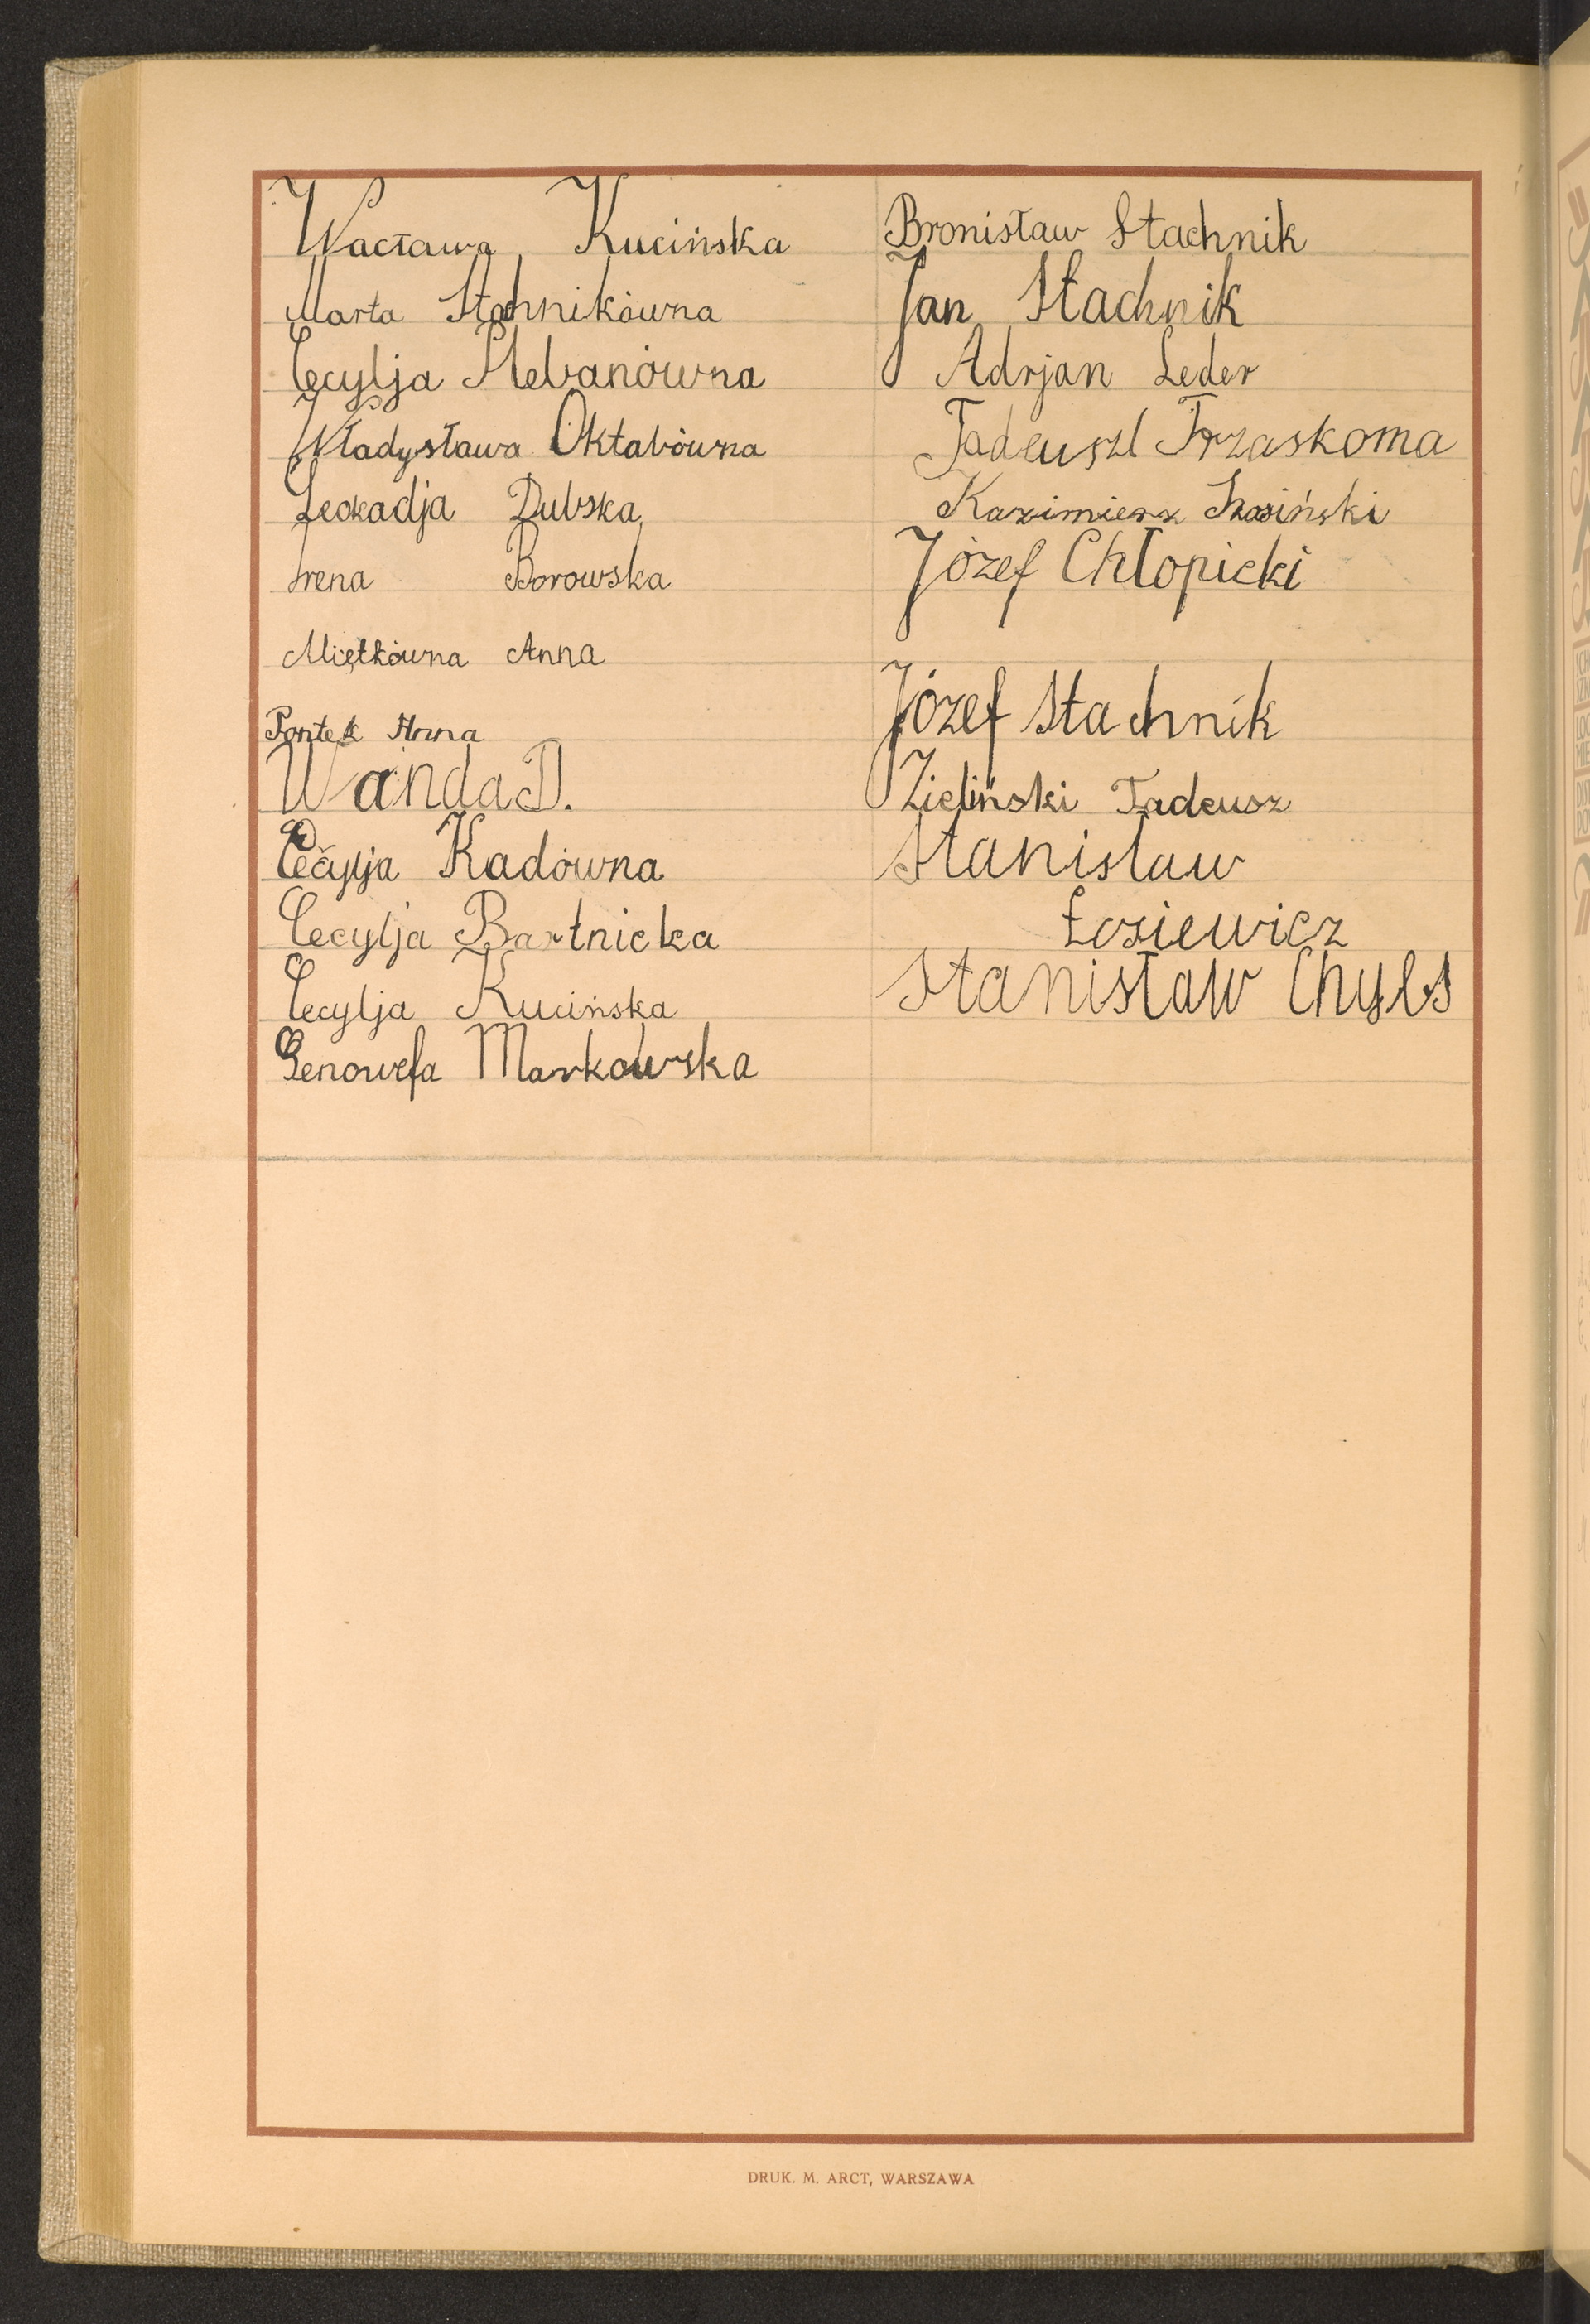 Wacława Kucińska
Marta Stahnikówna
Cecylja Plebanówna
Władysława Oktabówna
Leokadja Dubska
Irena Borowska
Miętkówna Anna
Pontek Anna
Wanda D.
Cecylja Kadówna
Cecylja Bartnicka
Cecylja Kucińska
Genowefa Markowska
Bronisław Stachnik
Jan Stachnik
Adrjan Leder
Tadeusz Trzaskoma
Kazimierz
Józef Chłopicki
Józef Stachnik
Zieliński Tadeusz
Stanislaw
Łosiewicz
Stanisław
DRUK. M. ARCT, WARSZAWA